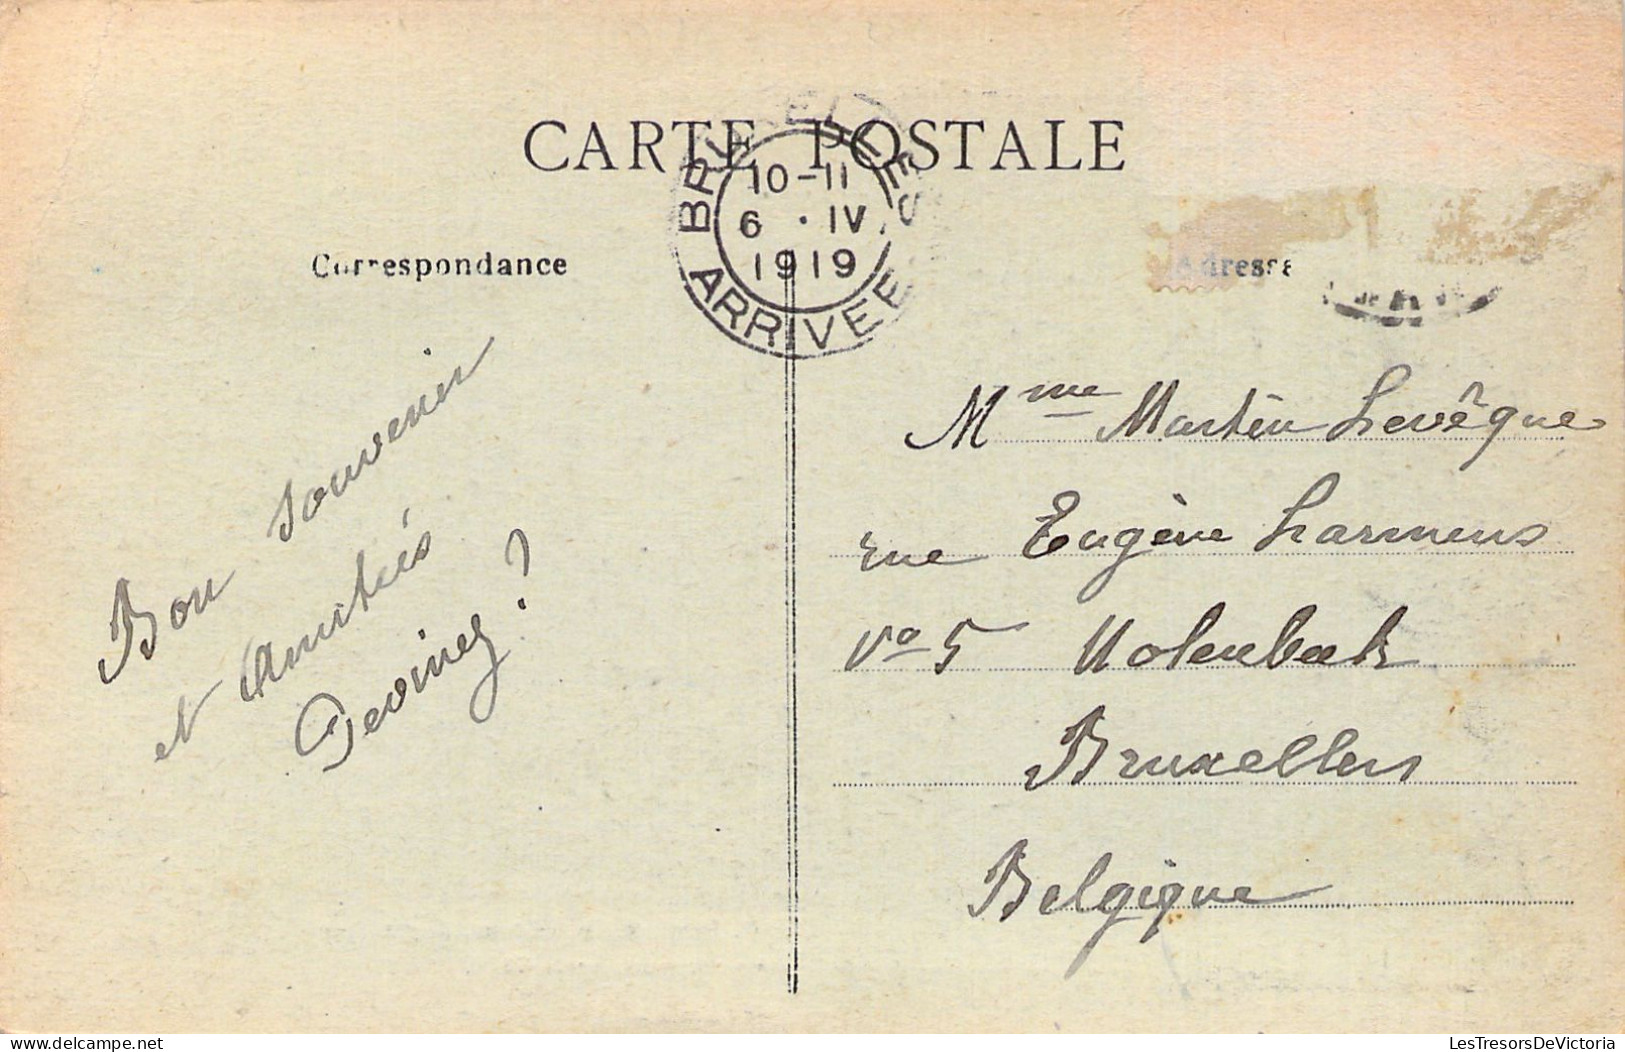 CARTE POSTALE
BRUXELLES
10-11
6 · IV
1919
ARRIVEE
Correspondance
Adresse
Bon souvenir
et Amitiés
Devinez ?
Mme Martin Levêque
rue Eugène Larmens
No 5 Molenbeek
Bruxelles
Belgique
delcampe.net
LesTresorsDeVictoria